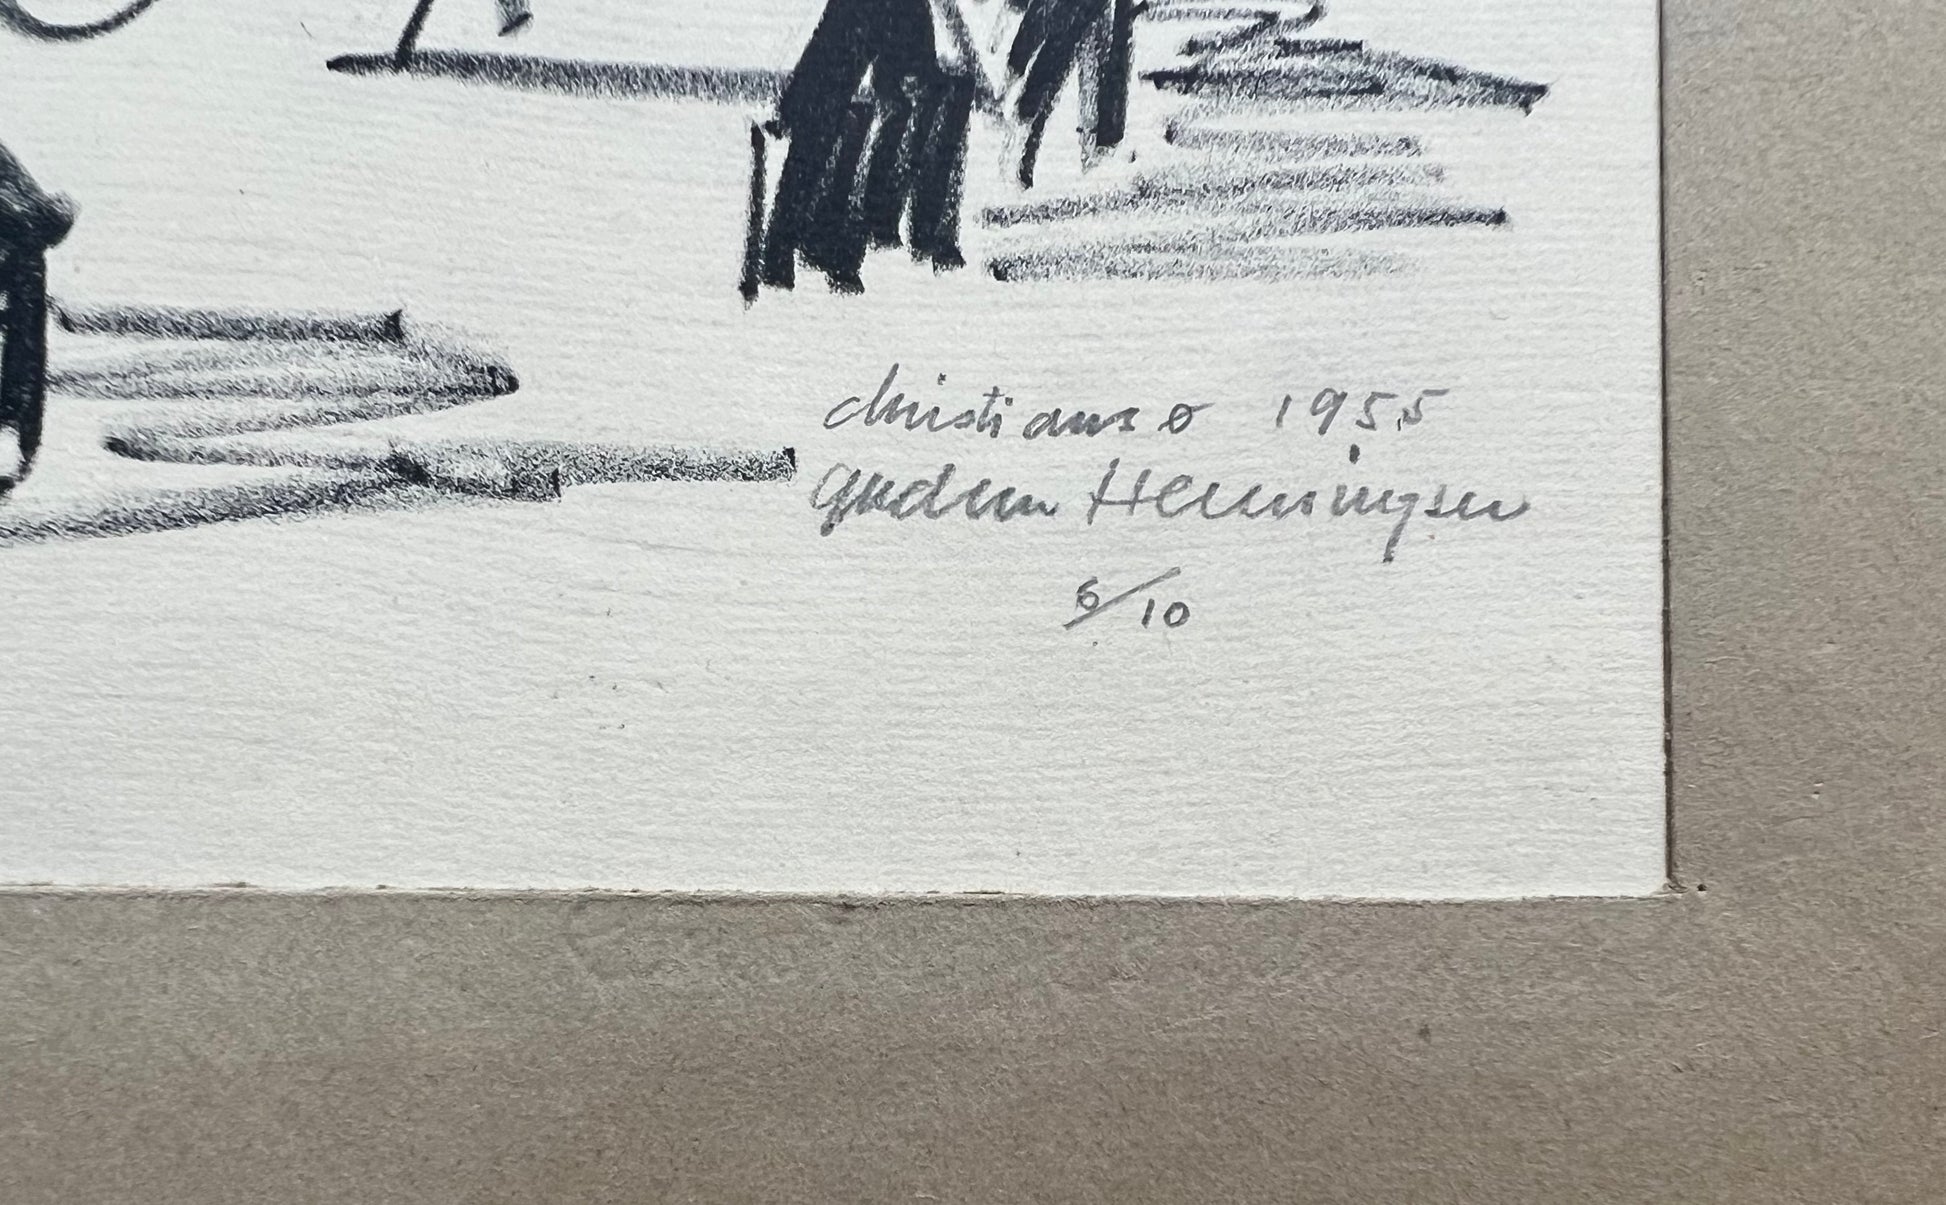 christiansø 1955
Gudrun Henningsen
6/10